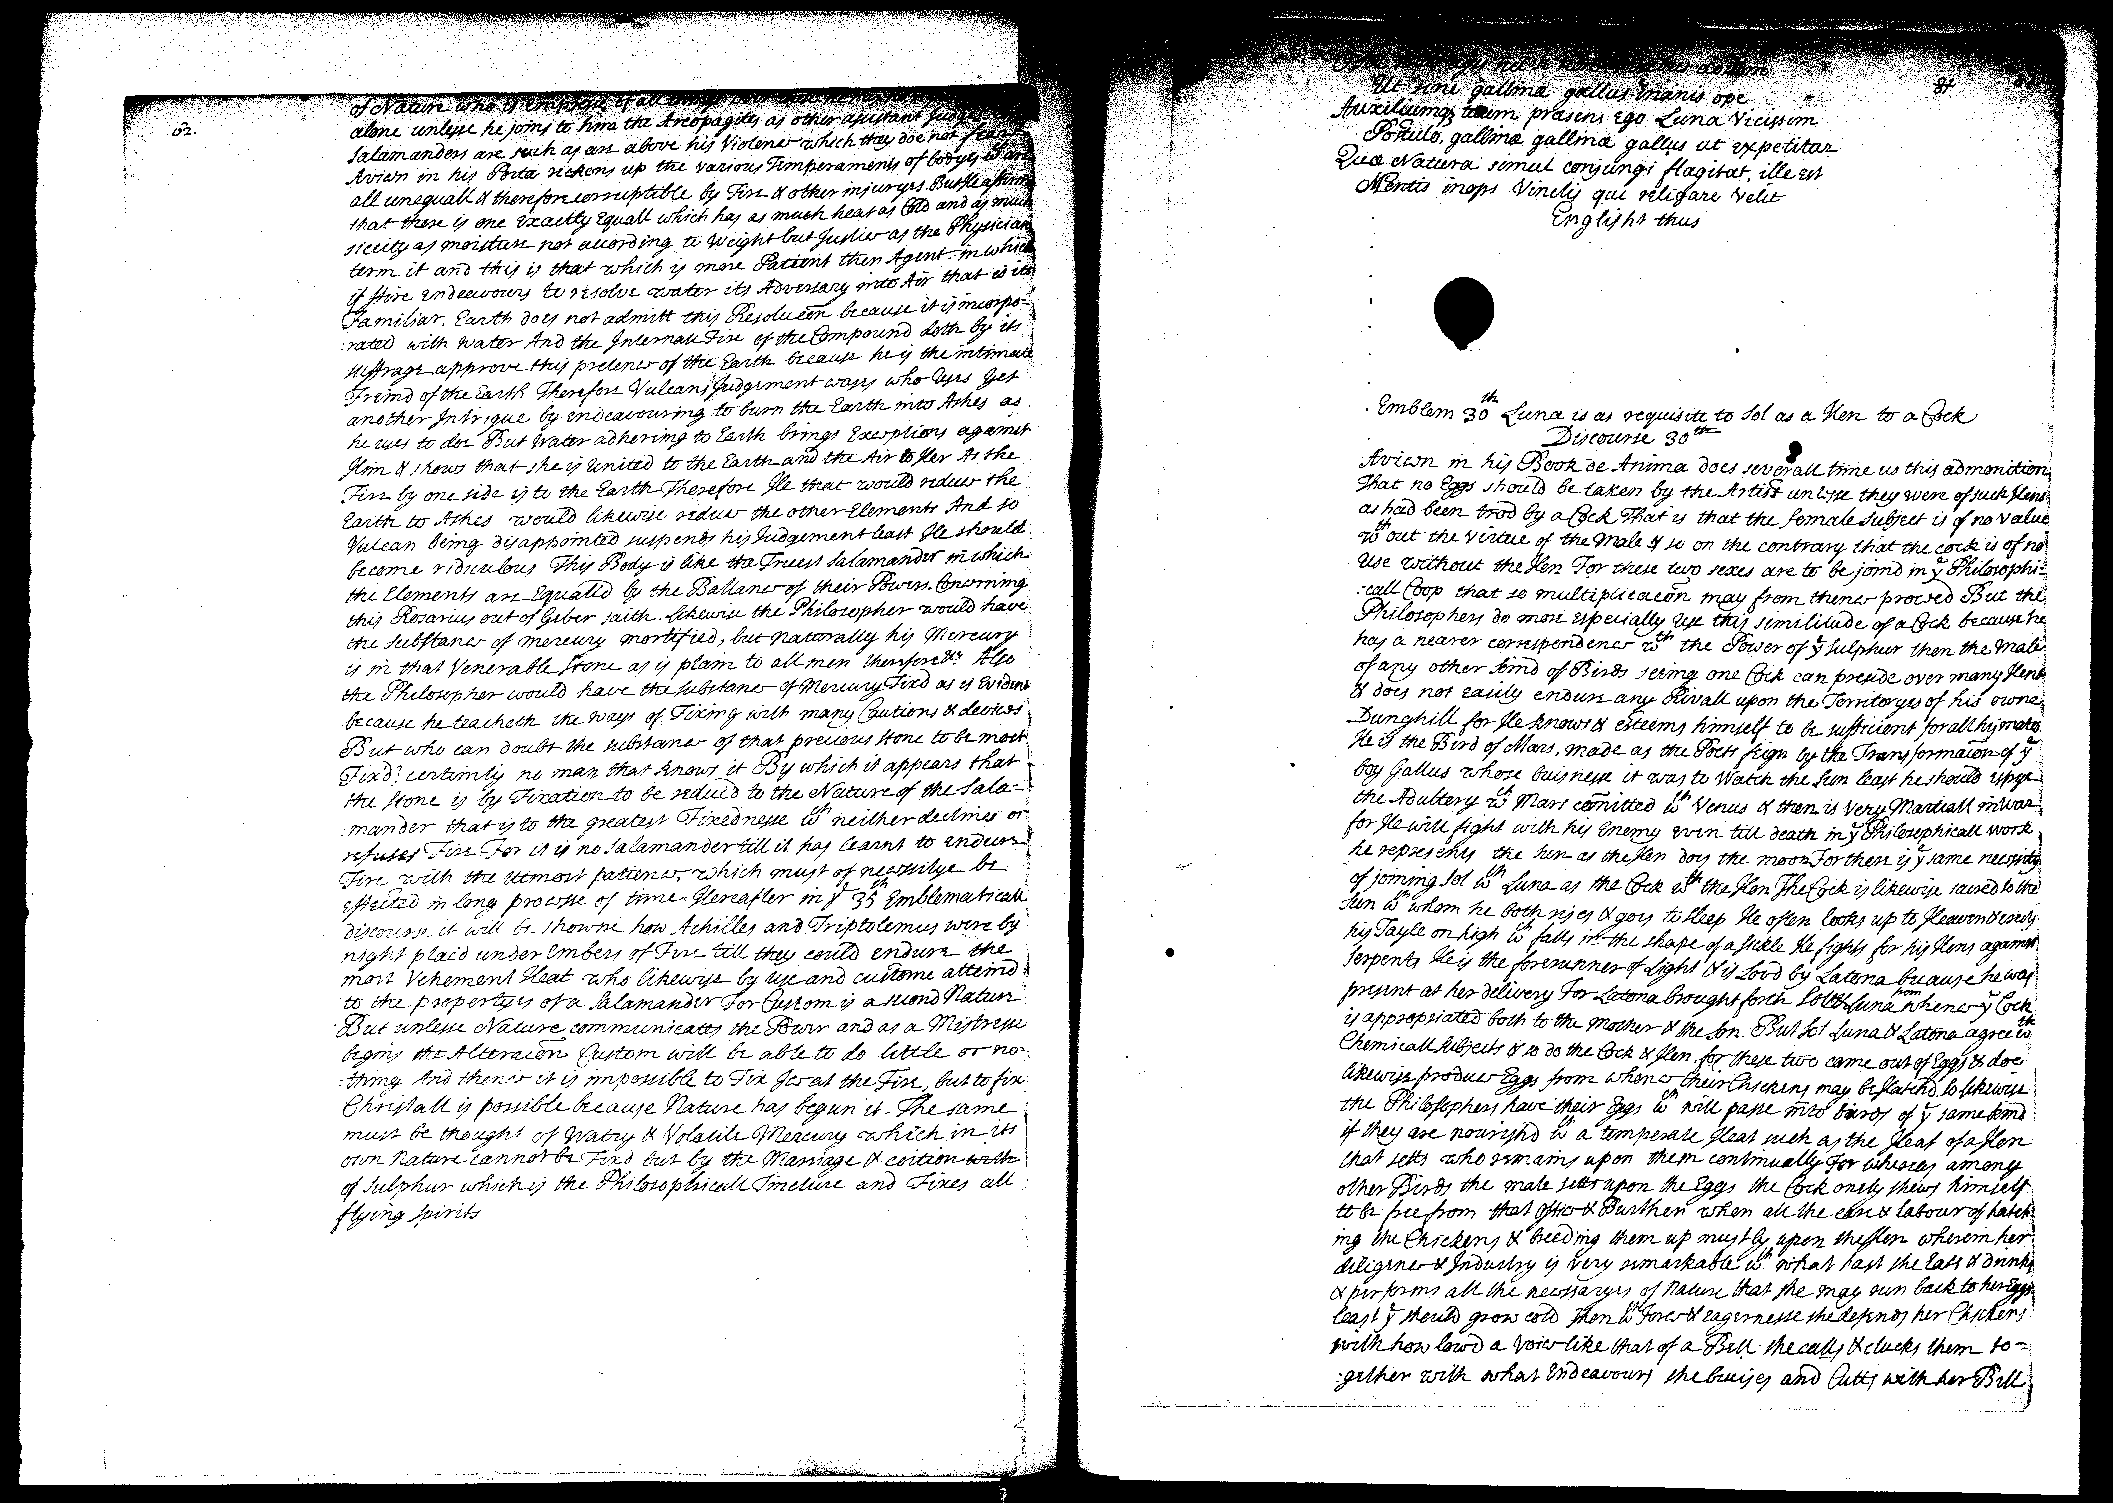 62.
of Nature who is
alone unlesse he joins to him the Areopagites as other assistant Judges
Salamanders are such as are above his Violence which they doe not fear
Avicen in his Porta reckons up the various Temperaments of bodyes
all unequall & therefore corruptible by Fire & other injuryes But He affirms
that there is one exactly Equall which has as much heat as Cold and as much
siccity as moisture not according to weight but Justice as the Physicians
term it and this is that which is more Patient then Agent in which
if Fire endeavours to resolve water its Adversary into Air that is its
Familiar. Earth does not admitt this Resolucõn because it is incorpo-
rated with Water And the Internall Fire of the Compound doth by its
suffrage approve this pretence of the Earth because he is the intimate
Freind of the Earth Therefore Vulcans Judgement who Uses Yet
another Intrigue by endeavouring to burn the Earth into Ashes as
he uses to doe But Water adhering to Earth brings Exceptions against
Him & shows that she is United to the Earth and the Air to Her As the
Fire by one side is to the Earth Therefore He that would reduce the
Earth to Ashes would likewise reduce the other Elements And so
Vulcan being disappointed suspends his Judgement least He should
become ridiculous This Body is like the Truest Salamander in which
the Elements are Equalld by the Ballance of their Powers. Concerning
this Rosarius out of Geber saith. likewise the Philosopher would have
the substance of mercury mortified, but naturally his Mercury
is in that Venerable stone as is plain to all men therefore &c Also
the Philosopher would have the substance of Mercury Fixd as is Evident
because he teacheth the ways of Fixing with many Cautions & devices
But who can doubt the substance of that precious stone to be most
Fixd? certeinly no man that knows it By which it appears that
the stone is by Fixation to be reducd to the Nature of the Sala-
mander that is to the greatest Fixednesse wch neither declines or
refuses Fire For it is no Salamander till it has learnt to endure
Fire with the utmost patience, which must of necessitye be
effected in long processe of time. Hereafter in ye 35th Emblematicall
discourse it will be showne how Achilles and Triptolemus were by
night placd under Embers of Fire till they could endure the
most Vehement Heat who likewise by use and custome attaind
to the propertyes of a Salamander For Custom is a second Nature
But unlesse Nature communicates the Power and as a Mistresse
begins the Alteracõn Custom will be able to do little or no-
thing And thence it is impossible to Fix Ice at the Fire, but to fix
Christall is possible because Nature has begun it. The same
must be thought of Watry & Volatile Mercury which in its
own nature cannot be Fixd but by the Marriage & coition with
of Sulphur which is the Philosophicall Tincture and Fixes all
flying spirits
Ut sine gallina gallus inanis ope
Auxiliumq præsens ego Luna vicissim
Postulo, gallinæ gallus ut expetitur
Quæ Natura simul conjungi flagitat, ille est
Mentis inops Vinclis qui religare velit
Englisht thus
Emblem 30th Luna is as requisite to Sol as a Hen to a Cock
Discourse 30th
Avicen in his Book de Anima does severall time us this admonition
That no Eggs should be taken by the Artist unlesse they were of such Hens
as had been trod by a Cock That is that the female subject is of no value
wthout the virtue of the Male & so on the contrary that the cock is of no
use without the Hen For these two sexes are to be joind in ye Philosophi-
call Coop that so multiplicacõn may from thence proceed But the
Philosophers do more especially Use this similitude of a Cock because he
has a nearer correspondence wth the Power of ye Sulphur then the male
of any other kind of Birds seeing one Cock can preside over many Hens
& does not easily endure any Rivall upon the Territoryes of his owne
Dunghill for He knows & esteems himself to be sufficient for all his mates
He is the Bird of Mars, made as the Poets feign by the Transformaiõn of ye
boy Gallus whose buisnesse it was to Watch the Sun least he should
the Adultery wch Mars comitted wth Venus & then is Very Martiall in War
for He will fight with his Enemy even till death in ye Philosophicall work
he represents the hen as the Hen does the moon For there is ye same necessity
of joining Sol wth Luna as the Cock wth the Hen The Cock is likewise sacred to the
Sun wth whom he both rises & goes to sleep He often looks up to Heaven &
his Tayle on high wch falls in the shape of a sickle He fights for his Hens against
Serpents He is the forerunner of Light & is Lov'd by Latona because he was
present at her delivery For Latona brought forth Sol & Luna from whence ye Cock
is appropriated both to the mother & the son. But Sol Luna & Latona agree wth
Chemicall subjects & so do the Cock & Hen for these two came out of Eggs & doe
likewise produce Eggs from whence their Chickens may be Hatch'd so likewise
the Philosophers have their Eggs wch will passe into birds of ye same kind
if they are nourishd wth a temperate Heat such as the Heat of a Hen
that setts who remains upon them continually For whereas among
other Birds the male setts upon the Eggs the Cock onely shews himself
to be free from that office & Burthen when all the care & labour of hatch
ing the Chickens & breeding them up must ly upon the Hen wherein her
diligence & Industry is very remarkable wth what hast she Eats & drinks
& performs all the necessaryes of Nature that she may run back to her Eggs
least ye should grow cold then wth Force & eagernesse she defends her Chickens
with how lowd a Voice like that of a Bell she calls & clucks them to-
gether with what Endeavours she bruises and Cutts with her Bill